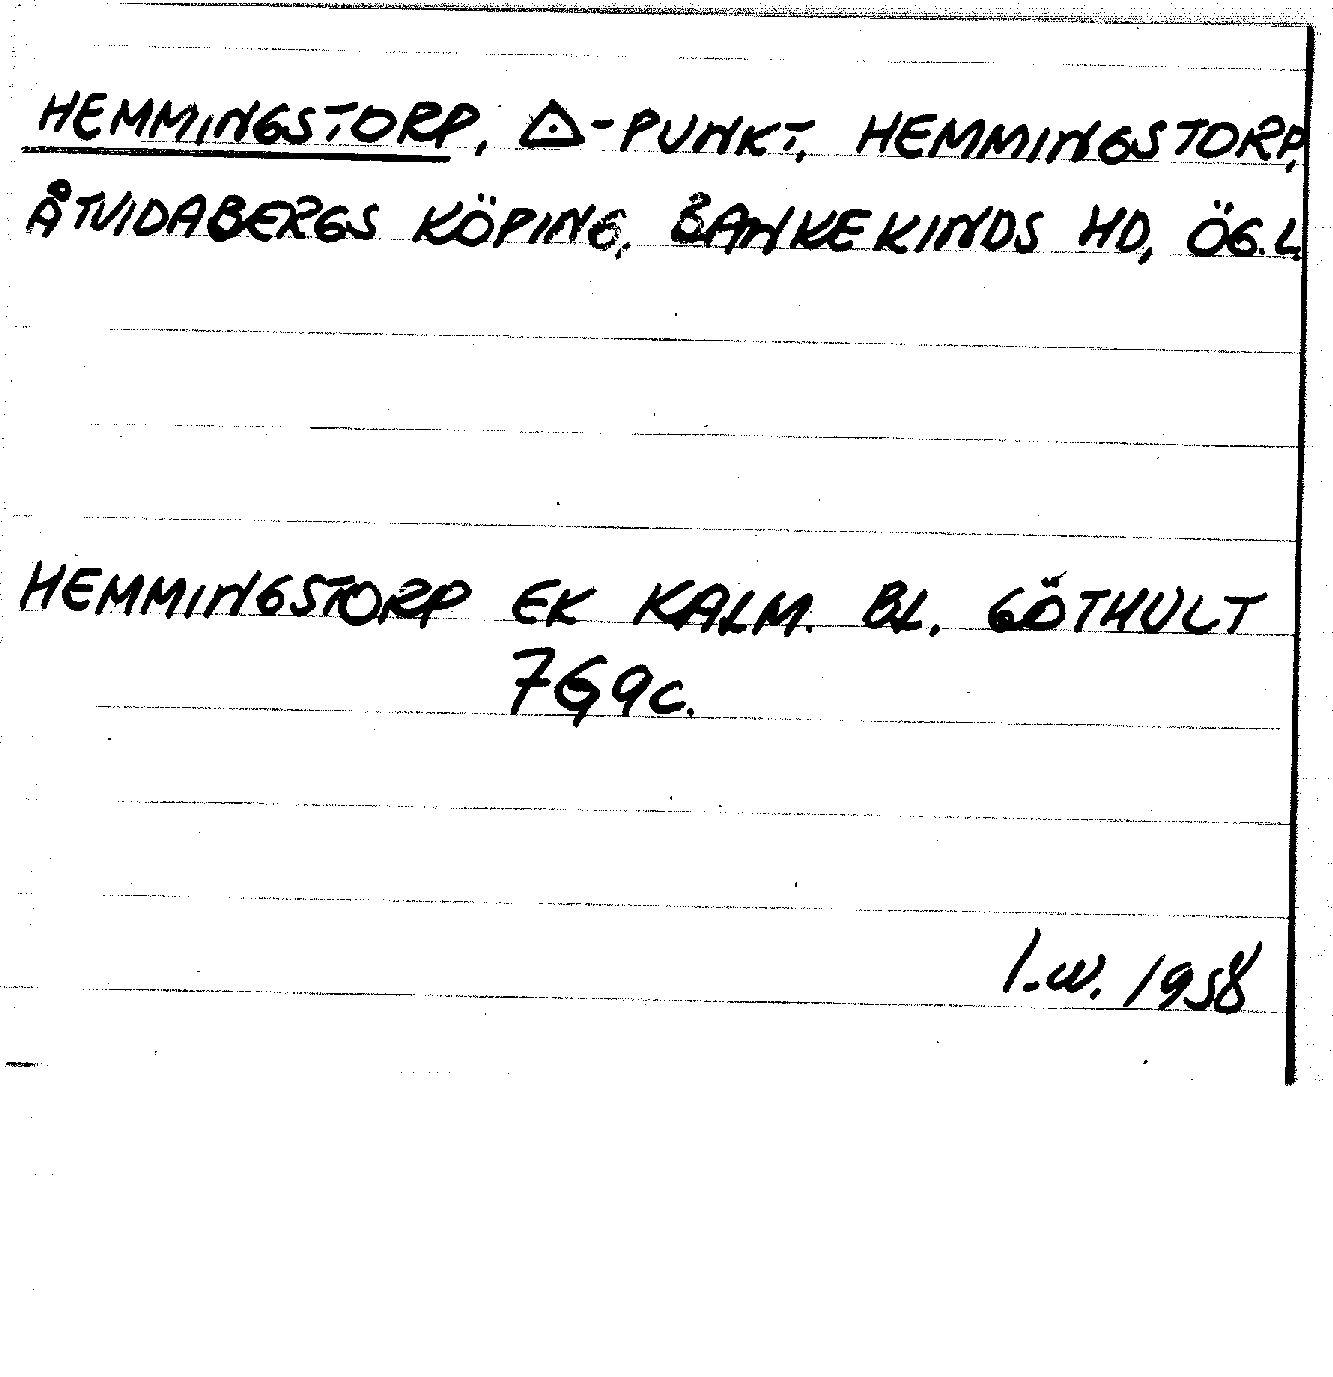 HEMMINGSTORP, △-PUNKT, HEMMINGSTORP,
ÅTVIDABERGS KÖPING, BANKEKINDS HD, ÖG.L.
HEMMINGSTORP EK KALM. BL. GÖTHULT
7G9c.
I.W. 1958